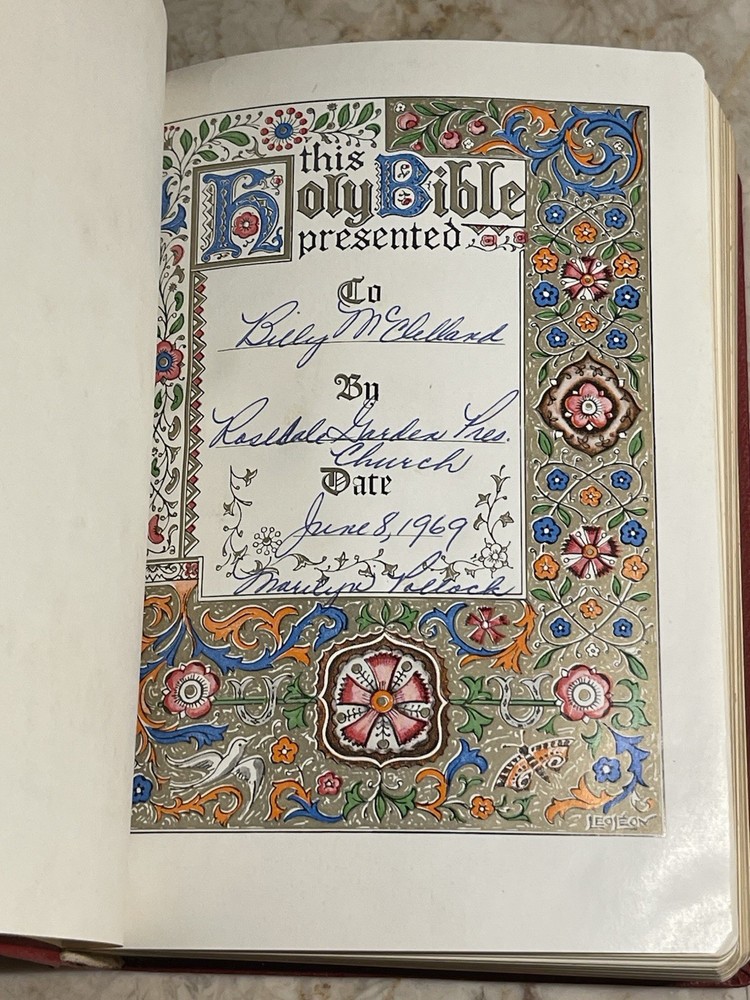 this
Holy Bible
presented
To
Billy McClelland
By
Rosedale Garden Pres.
Church
Date
June 8, 1969
Marilyn Pollock
LEOLEON